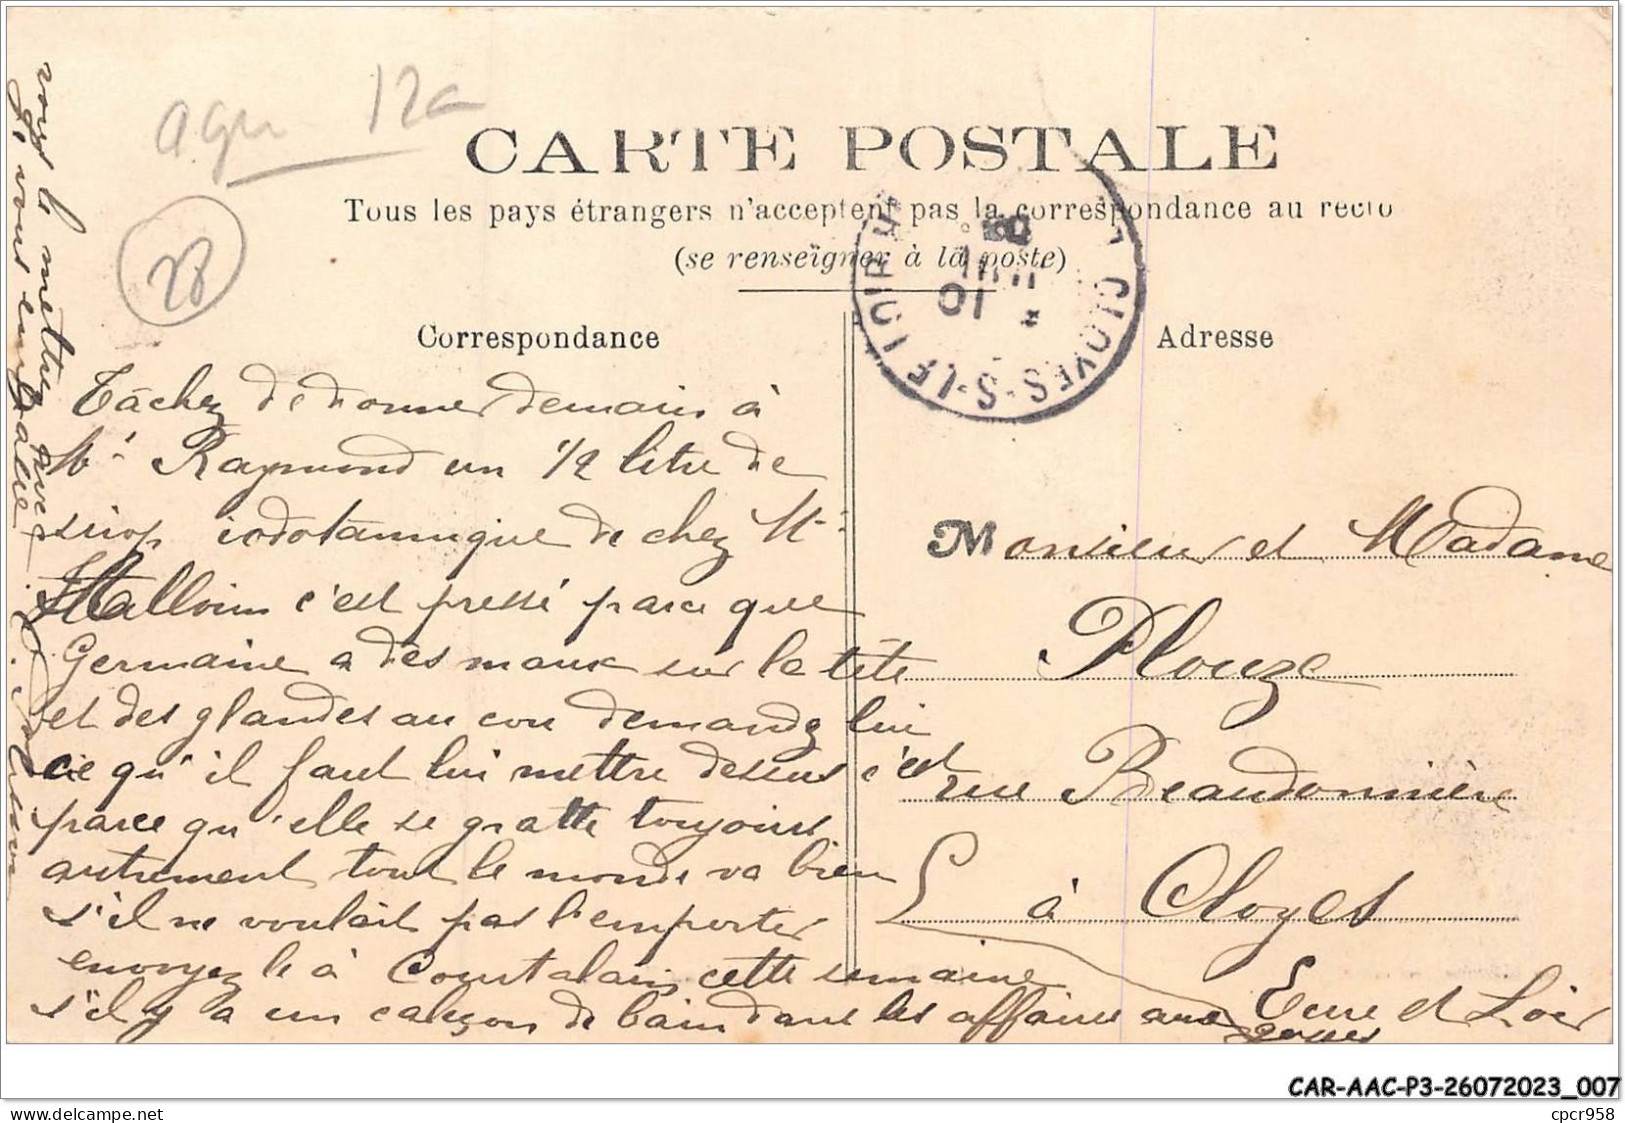 agr 12a
28
CARTE POSTALE
Tous les pays étrangers n'acceptent pas la correspondance au recto
(se renseigner à la poste)
Correspondance
Adresse
CLOYES-S-LE LOIR
Tâchez de donner demain à
Mr Raymond un 1/2 litre de
sirop iodotannique de chez Mr
Halloin c'est pressé parce que
Germaine a des maux sur la tête
et des glandes au cou demandez lui
ce qu'il faut lui mettre dessus c'est
parce qu'elle se gratte toujours
autrement tout le monde va bien
s'il ne voulait pas l'emporter
envoyez le à Courtalain cette semaine
s'il y a un caleçon de bain dans les affaires aux gosses
vous le mettrez avec
Je vous embrasse
Monsieur et Madame
Plouze
rue Beaudonnière
à Cloyes
Eure et Loir
CAR-AAC-P3-26072023_007
www.delcampe.net
cpcr958